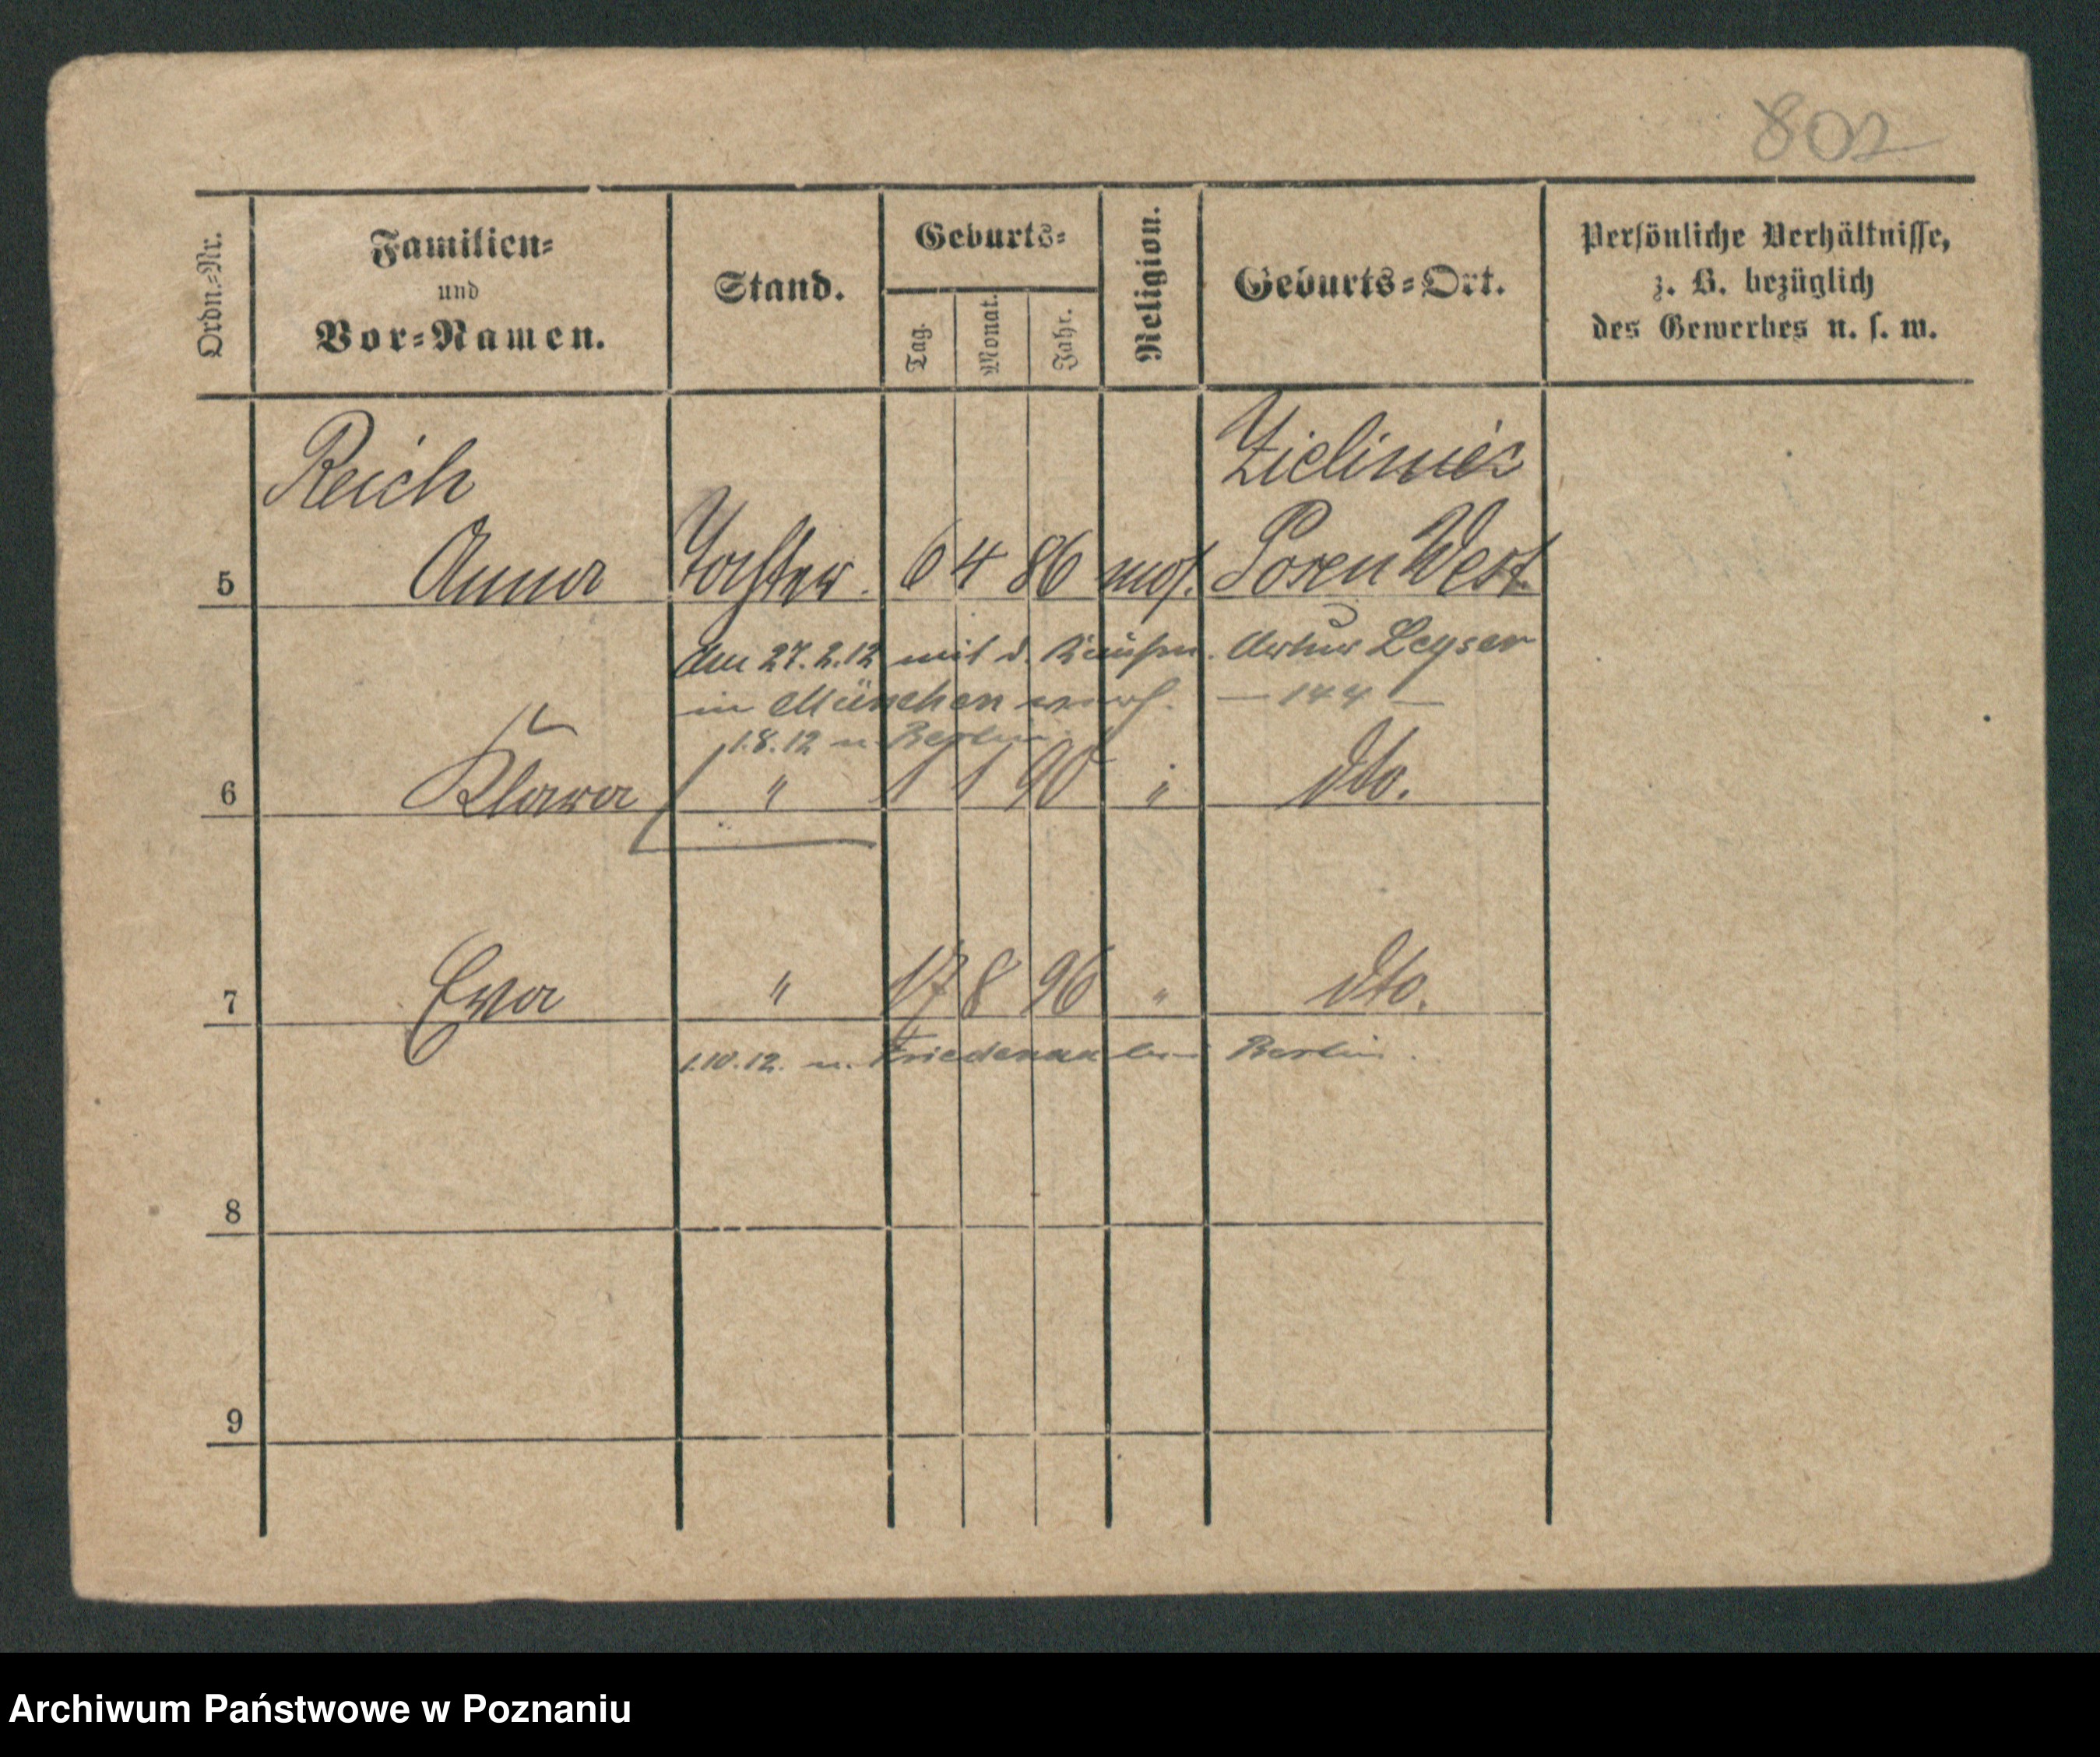 802
Ordn.=Nr.
Familien=
und
Vor=Namen.
Stand.
Geburts=
Tag.
Monat.
Jahr.
Religion.
Geburts=Ort.
Persönliche Verhältnisse,
z. B. bezüglich
des Gewerbes u. s. w.
Reich
Posen West.
5 Anna Tochter. 6 4 86 mos.
Am 27.2.12 mit d. Kaufm. Artur Leyser
in München verh. — 144 —
1.8.12 n. Berlin
6 Klara " 1 1 90 " dto.
7 Eva " 17 8 96 " dto.
1.10.12. n. Friedenau bei Berlin.
8
9
Archiwum Państwowe w Poznaniu